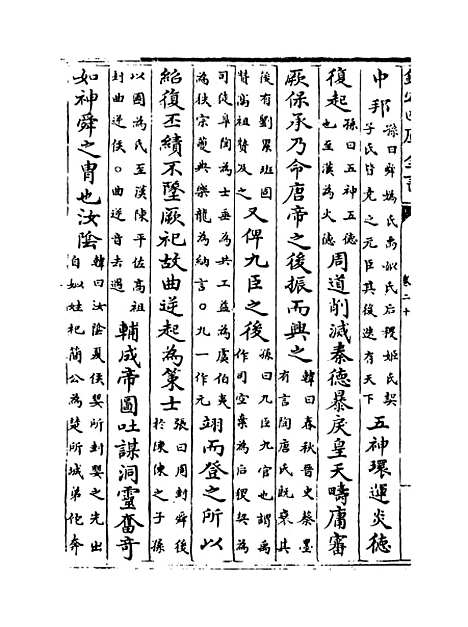 中邦孫曰舜媯氏禹姒氏后稷姬氏契
子氏皆堯之元臣其後迭有天下五神環運炎徳
復起孫曰五神五徳
也至漢為火徳周道削滅秦徳暴戾皇天疇庸審
厥保承乃命唐帝之後振而興之韓曰春秋晉史蔡墨
有言陶唐氏既衰其
後有劉累班固
賛髙祖賛及之又俾九臣之後孫曰九臣九官也謂禹
作司空棄為后稷契為
司徒臯陶為士垂為共工益為虞伯夷
為秩宗夔典樂龍為納言〇九一作元翊而登之所以
紹復丕績不墜厥祀故曲逆起為策士張曰周封舜後
於陳陳之子孫
以國為氏至漢陳平佐髙祖
封曲逆侯〇曲逆音去遇輔成帝圖吐謀洞靈奮竒
如神舜之胄也汝隂韓曰汝隂夏侯嬰所封嬰之先出
自姒姓祀簡公為楚所滅弟佗奔
卷二十